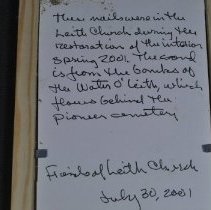 These nails were in the
Leith Church during the
restoration of the interior
Spring 2001. The wood
is from the banks of
the Water O' Leith, which
flows behind the
pioneer cemetery
Friends of Leith Church
July 30, 2001